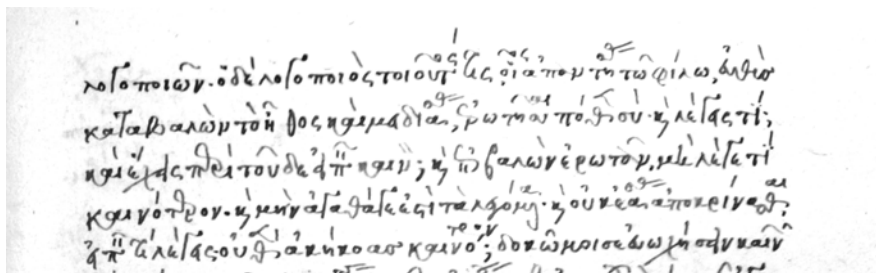 λογοποιῶν. ὁ δὲ λογοποιὸς τοιοῦτός τις οἷος ἀπαντήσας τῶ φίλω, εὐθὺς
καταβαλὼν τὸ ἦθος καὶ μειδιάσας, ἐρωτῆσαι πόθεν σύ· καὶ λέγεις τί;
καὶ ἔχεις περὶ τοῦδε εἰπεῖν καινόν; καὶ ἐπιβαλὼν ἐρωτᾶν, μὴ λέγεταί τι
καινότερον· καὶ μὴν ἀγαθά γε ἐστὶ τὰ λεγόμενα· καὶ οὐκ ἐάσας ἀποκρίνασθαι,
εἰπεῖν τί λέγεις· οὐθὲν ἀκήκοας καινότερον; δοκῶ μοι σε εὐωχήσειν καινῶν